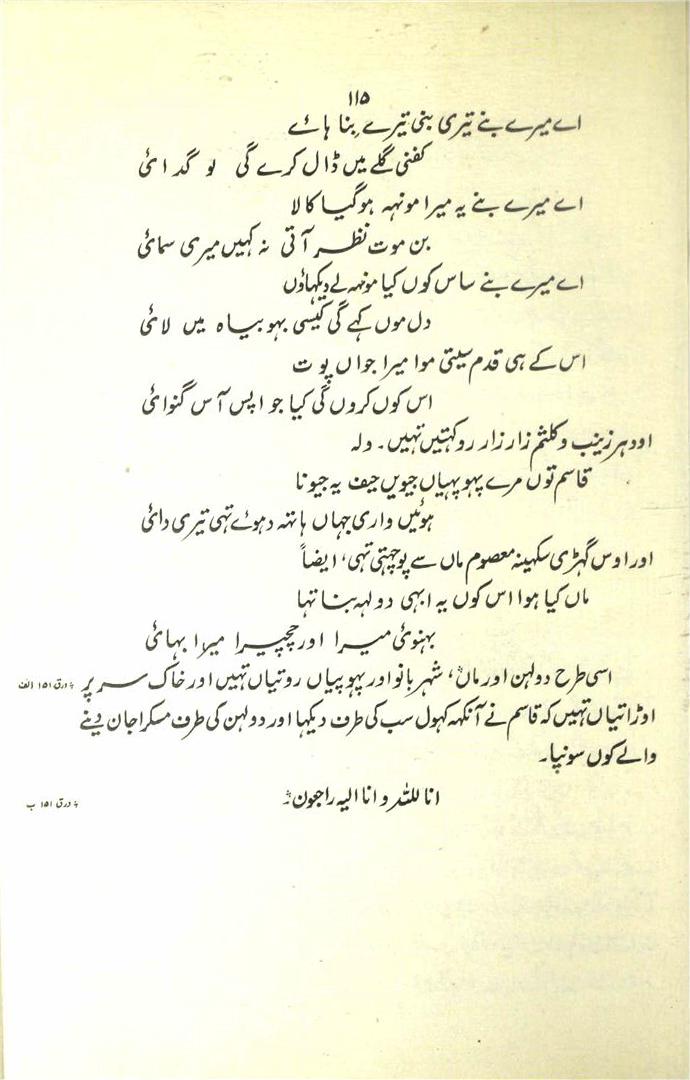 ۱۱۵
اے میرے بنے تیری بنی تیرے بنا ہائے
کفنی گلے میں ڈال کرے گی لو گدائی
اے میرے بنے یہ میرا مونہہ ہوگیا کالا
بن موت نظر آتی نہ کہیں میری سمائی
اے میرے بنے ساس کوں کیا مونہہ لے دیکہاؤں
دل موں کہے گی کیسی بہو بیاہ میں لائی
اس کے ہی قدم سیتی موا میرا جواں پوت
اس کوں کروں گی کیا جو اپس آس گنوائی
اودہر زینب و کلثم زار زار رو کہتیں تہیں۔ ولہ
قاسم توں مرے پہوپہیاں جیویں حیف یہ جیونا
ہوئیں واری جہاں ہاتہہ دہوے تہی تیری دائی
اور اوس گہڑی سکہینہ معصوم ماں سے پوچہتی تہی، ایضاً
ماں کیا ہوا اس کوں یہ ابہی دولہہ بنا تہا
بہنوئی میرا اور چچیرا میرا بہائی
اسی طرح دولہن اور ماں، شہربانو اور پہوپیاں روتیاں تہیں اور خاک سر پر ؎ ورق ۱۵۱ الف
اوڑاتیاں تہیں کہ قاسم نے آنکہہ کہول سب کی طرف دیکہا اور دولہن کی طرف مسکرا جان دینے
والے کوں سونپا۔
انا للہ و انا الیہ راجعون ؎ ورق ۱۵۱ ب